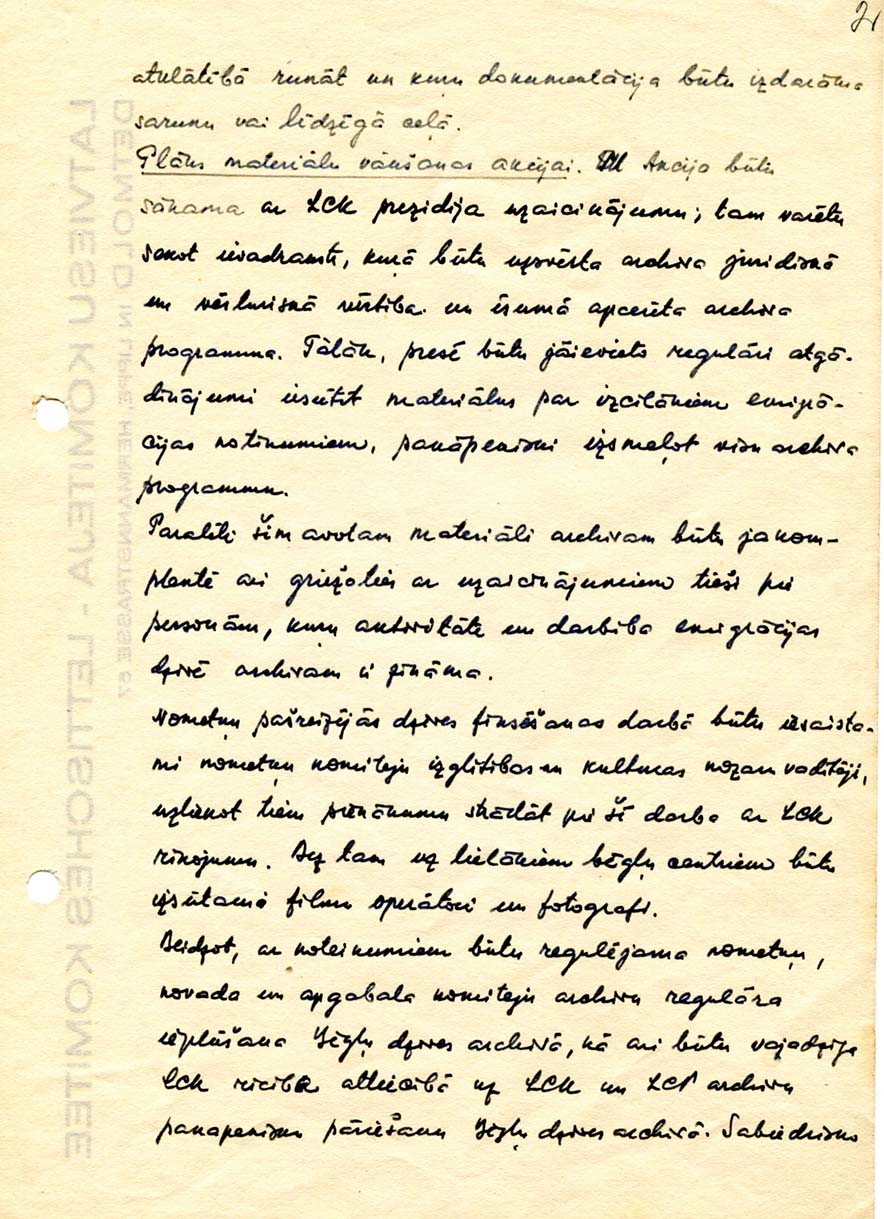 2
atklātībā runāt un kuru dokumentācija būtu izdarāma
sarunu vai līdzīgā ceļā.
Plāns materiālu vākšanas akcijai. Akcija būtu
sākama ar LCK prezidija uzaicinājumu; tam varētu
sekot ievadraksti, kurā būtu uzsvērta archiva juridiskā
un vēsturiskā vērtība un īsumā apcerēta archiva
programma. Tālāk, presē būtu jāievieto regulāri atgā-
dinājumi iesūtīt materiālus par izcilākiem emigrā-
cijas notikumiem, pakāpeniski izsmeļot visu archiva
programmu.
Paralēli šim avotam materiāli archivam būtu jākom-
plektē arī griežoties ar uzaicinājumiem tieši pie
personām, kuru autoritāte un darbība emigrācijas
dzīvē archivam ir zināma.
Nometņu pašreizējās dzīves fiksēšanas darbā būtu iesaista-
mi nometņu komiteju izglītības un kultūras nozaru vadītāji,
uzliekot tiem pienākumu strādāt pie šī darba ar LCK
rīkojumu. Bez tam uz lielākiem bēgļu centriem būtu
izsūtami filmu operātori un fotografi.
Beidzot, ar noteikumiem būtu regulējama nometņu,
novada un apgabala komiteju archivu regulāra
ieplūšana Bēgļu dzīves archivā, kā arī būtu vajadzīga
LCK rīcība attiecībā uz LCK un LCP archivu
pakapenisku pāriešanu Bēgļu dzīves archivā. Sabiedrisko
LATVIEŠU KOMITEJA - LETTISCHES KOMITEE
DETMOLD IN LIPPE, HERMANNSTRASSE 67